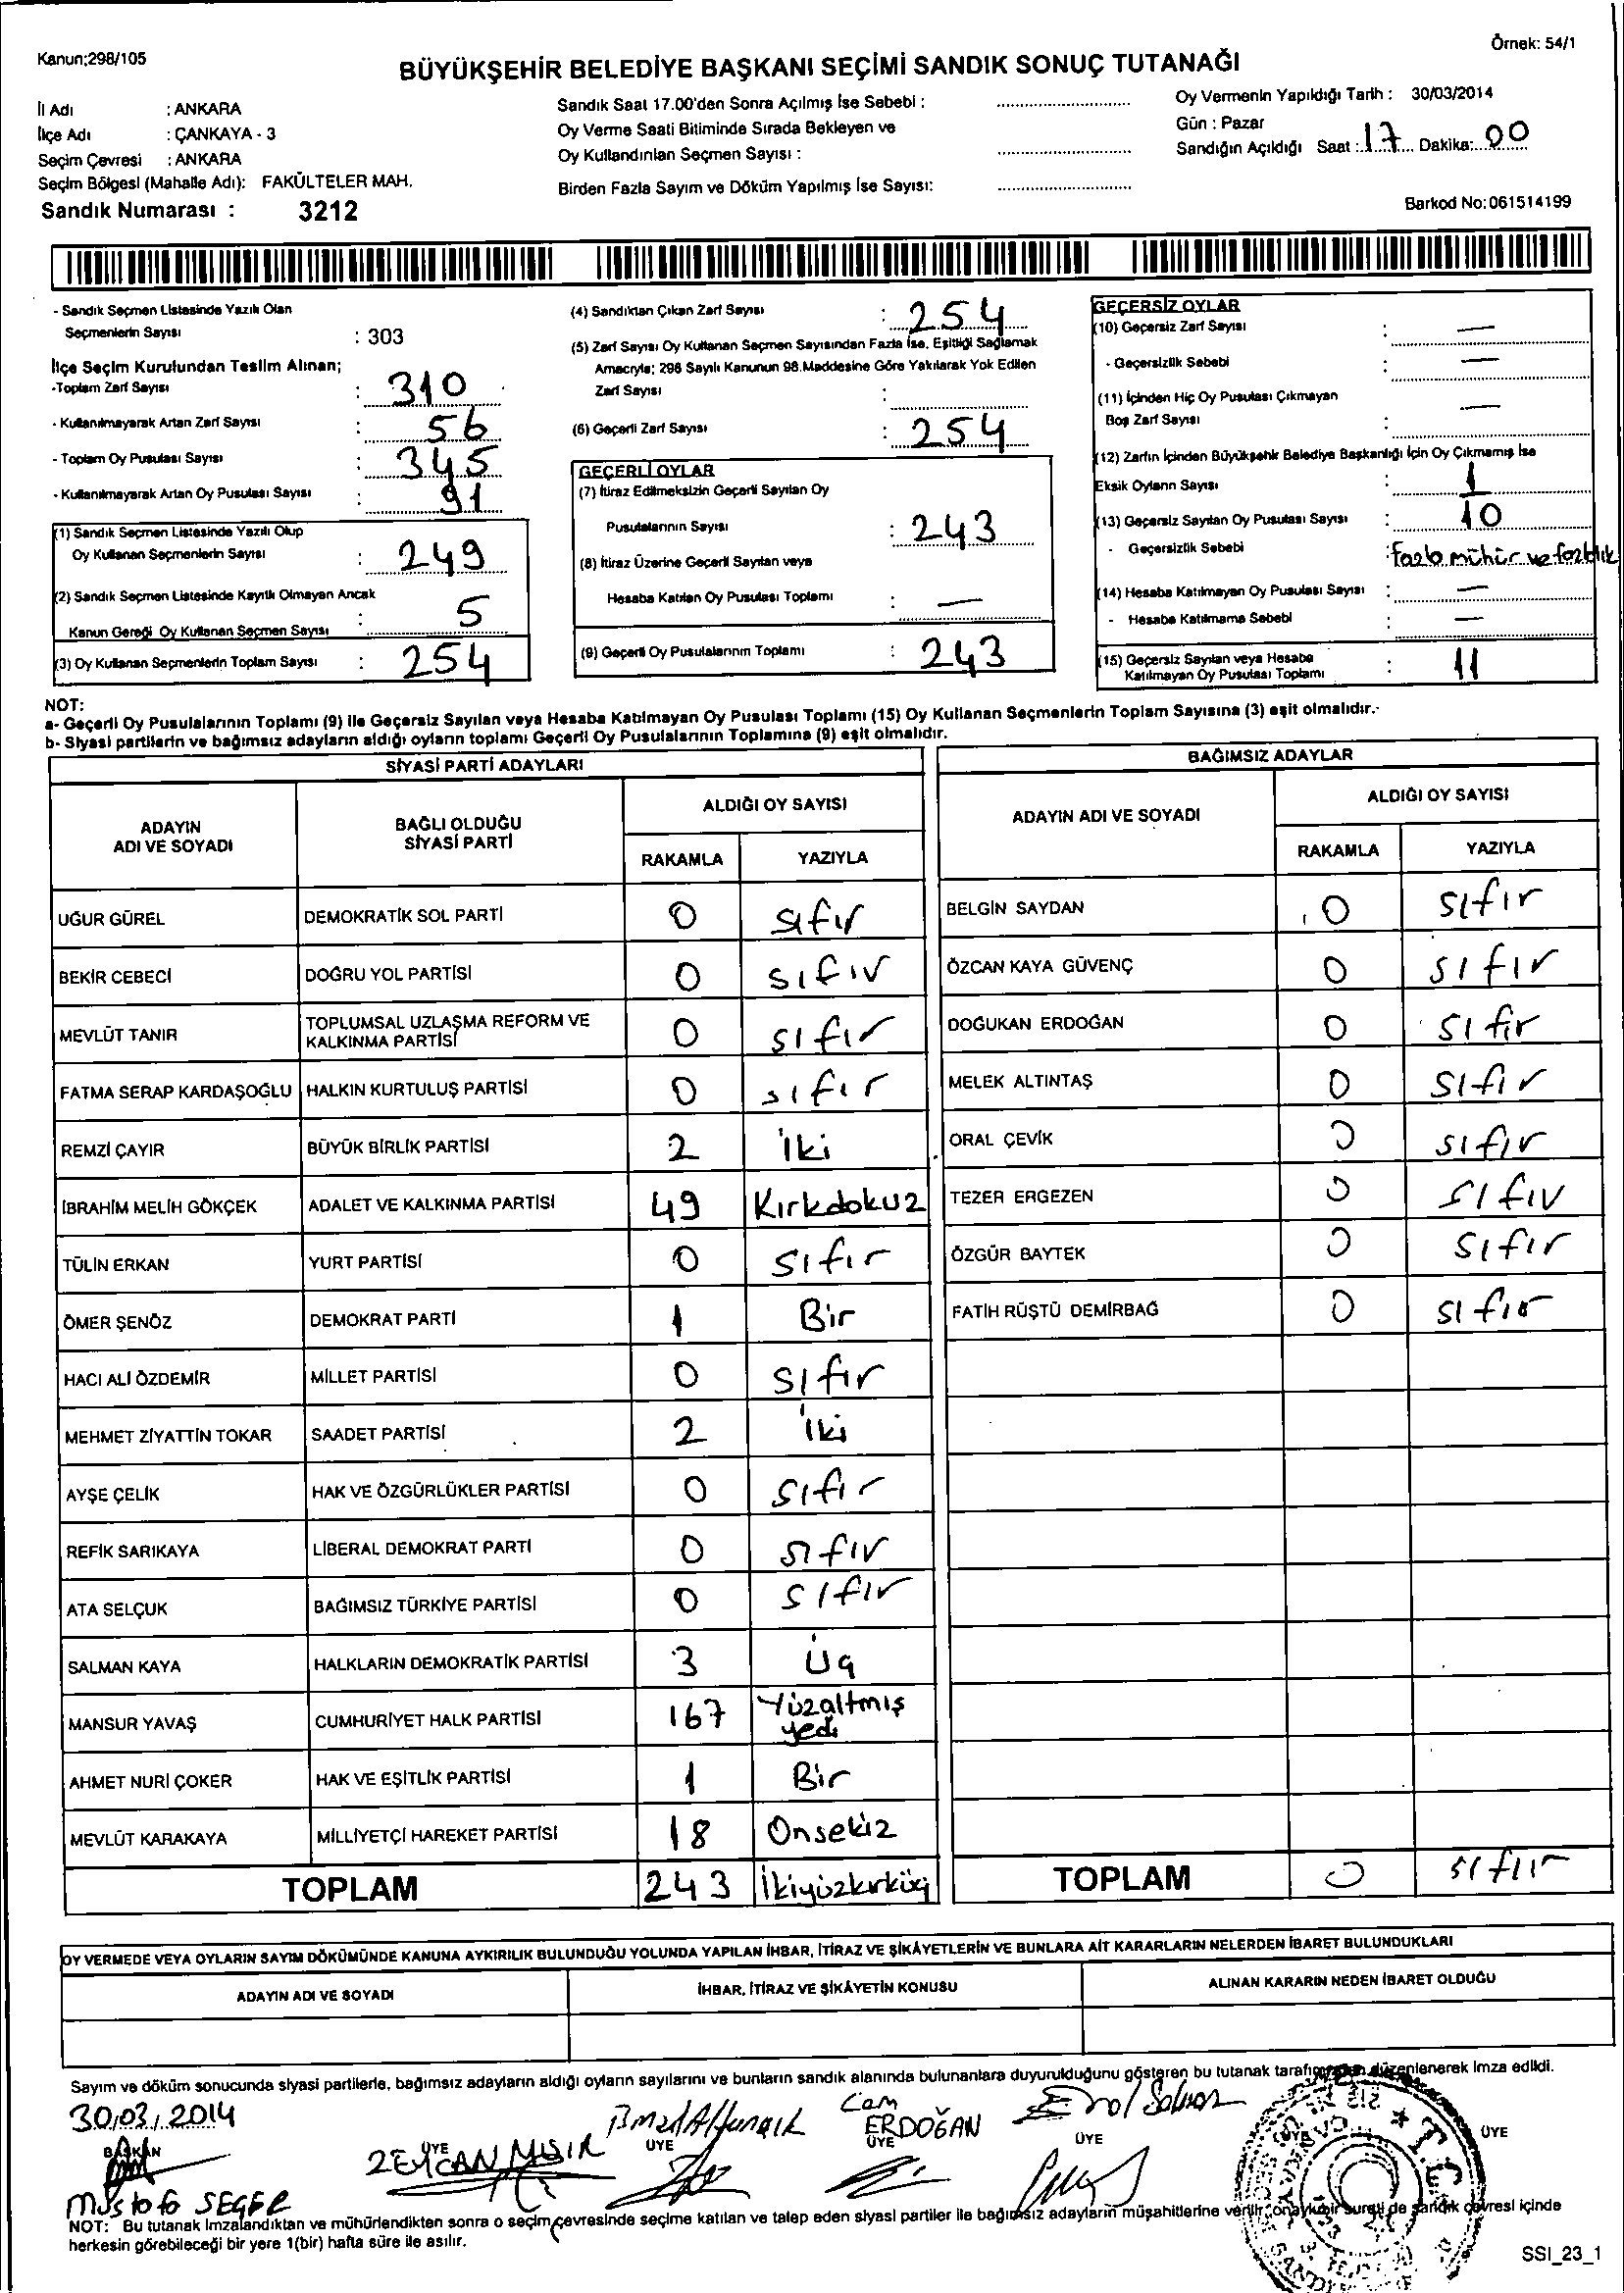 Kanun;298/105
Örnek: 54/1
BÜYÜKŞEHİR BELEDİYE BAŞKANI SEÇİMİ SANDIK SONUÇ TUTANAĞI
İl Adı : ANKARA
İlçe Adı : ÇANKAYA - 3
Seçim Çevresi : ANKARA
Seçim Bölgesi (Mahalle Adı): FAKÜLTELER MAH.
Sandık Numarası : 3212
Sandık Saat 17.00'den Sonra Açılmış İse Sebebi :
Oy Verme Saati Bitiminde Sırada Bekleyen ve
Oy Kullandırılan Seçmen Sayısı :
Birden Fazla Sayım ve Döküm Yapılmış İse Sayısı:
Oy Vermenin Yapıldığı Tarih : 30/03/2014
Gün : Pazar
Sandığın Açıldığı Saat : 17 Dakika: 00
Barkod No: 061514199
- Sandık Seçmen Listesinde Yazılı Olan
Seçmenlerin Sayısı : 303
İlçe Seçim Kurulundan Teslim Alınan;
-Toplam Zarf Sayısı : 310
- Kullanılmayarak Artan Zarf Sayısı : 56
- Toplam Oy Pusulası Sayısı : 345
- Kullanılmayarak Artan Oy Pusulası Sayısı 91
(1) Sandık Seçmen Listesinde Yazılı Olup
Oy Kullanan Seçmenlerin Sayısı : 249
(2) Sandık Seçmen Listesinde Kayıtlı Olmayan Ancak
Kanun Gereği Oy Kullanan Seçmen Sayısı : 5
(3) Oy Kullanan Seçmenlerin Toplam Sayısı : 254
(4) Sandıktan Çıkan Zarf Sayısı : 254
(5) Zarf Sayısı Oy Kullanan Seçmen Sayısından Fazla İse, Eşitliği Sağlamak
Amacıyla; 298 Sayılı Kanunun 98.Maddesine Göre Yakılarak Yok Edilen
Zarf Sayısı :
(6) Geçerli Zarf Sayısı : 254
GEÇERLİ OYLAR
(7) İtiraz Edilmeksizin Geçerli Sayılan Oy
Pusulalarının Sayısı : 243
(8) İtiraz Üzerine Geçerli Sayılan veya
Hesaba Katılan Oy Pusulası Toplamı : —
(9) Geçerli Oy Pusulalarının Toplamı : 243
GEÇERSİZ OYLAR
(10) Geçersiz Zarf Sayısı : —
- Geçersizlik Sebebi : —
(11) İçinden Hiç Oy Pusulası Çıkmayan
Boş Zarf Sayısı : —
(12) Zarfın İçinden Büyükşehir Belediye Başkanlığı İçin Oy Çıkmamış İse
Eksik Oyların Sayısı : 1
(13) Geçersiz Sayılan Oy Pusulası Sayısı : 10
- Geçersizlik Sebebi : fazla mühür ve fazlalık
(14) Hesaba Katılmayan Oy Pusulası Sayısı : —
- Hesaba Katılmama Sebebi : —
(15) Geçersiz Sayılan veya Hesaba
Katılmayan Oy Pusulası Toplamı : 11
NOT:
a- Geçerli Oy Pusulalarının Toplamı (9) ile Geçersiz Sayılan veya Hesaba Katılmayan Oy Pusulası Toplamı (15) Oy Kullanan Seçmenlerin Toplam Sayısına (3) eşit olmalıdır.
b- Siyasi partilerin ve bağımsız adayların aldığı oyların toplamı Geçerli Oy Pusulalarının Toplamına (9) eşit olmalıdır.
SİYASİ PARTİ ADAYLARI
ADAYIN ADI VE SOYADI BAĞLI OLDUĞU SİYASİ PARTİ ALDIĞI OY SAYISI
RAKAMLA YAZIYLA
UĞUR GÜREL DEMOKRATİK SOL PARTİ 0 sıfır
BEKİR CEBECİ DOĞRU YOL PARTİSİ 0 sıfır
MEVLÜT TANIR TOPLUMSAL UZLAŞMA REFORM VE KALKINMA PARTİSİ 0 sıfır
FATMA SERAP KARDAŞOĞLU HALKIN KURTULUŞ PARTİSİ 0 sıfır
REMZİ ÇAYIR BÜYÜK BİRLİK PARTİSİ 2 iki
İBRAHİM MELİH GÖKÇEK ADALET VE KALKINMA PARTİSİ 49 Kırkdokuz
TÜLİN ERKAN YURT PARTİSİ 0 sıfır
ÖMER ŞENÖZ DEMOKRAT PARTİ 1 Bir
HACI ALİ ÖZDEMİR MİLLET PARTİSİ 0 sıfır
MEHMET ZİYATTİN TOKAR SAADET PARTİSİ 2 iki
AYŞE ÇELİK HAK VE ÖZGÜRLÜKLER PARTİSİ 0 sıfır
REFİK SARIKAYA LİBERAL DEMOKRAT PARTİ 0 sıfır
ATA SELÇUK BAĞIMSIZ TÜRKİYE PARTİSİ 0 sıfır
SALMAN KAYA HALKLARIN DEMOKRATİK PARTİSİ 3 Üç
MANSUR YAVAŞ CUMHURİYET HALK PARTİSİ 167 Yüzaltmış yedi
AHMET NURİ ÇOKER HAK VE EŞİTLİK PARTİSİ 1 Bir
MEVLÜT KARAKAYA MİLLİYETÇİ HAREKET PARTİSİ 18 Onsekiz
TOPLAM 243 İkiyüzkırküç
BAĞIMSIZ ADAYLAR
ADAYIN ADI VE SOYADI ALDIĞI OY SAYISI
RAKAMLA YAZIYLA
BELGİN SAYDAN 0 sıfır
ÖZCAN KAYA GÜVENÇ 0 sıfır
DOĞUKAN ERDOĞAN 0 sıfır
MELEK ALTINTAŞ 0 sıfır
ORAL ÇEVİK 0 sıfır
TEZER ERGEZEN 0 sıfır
ÖZGÜR BAYTEK 0 sıfır
FATİH RÜŞTÜ DEMİRBAĞ 0 sıfır
TOPLAM 0 sıfır
OY VERMEDE VEYA OYLARIN SAYIM DÖKÜMÜNDE KANUNA AYKIRILIK BULUNDUĞU YOLUNDA YAPILAN İHBAR, İTİRAZ VE ŞİKÂYETLERİN VE BUNLARA AİT KARARLARIN NELERDEN İBARET BULUNDUKLARI
ADAYIN ADI VE SOYADI İHBAR, İTİRAZ VE ŞİKÂYETİN KONUSU ALINAN KARARIN NEDEN İBARET OLDUĞU
Sayım ve döküm sonucunda siyasi partilerle, bağımsız adayların aldığı oyların sayılarını ve bunların sandık alanında bulunanlara duyurulduğunu gösteren bu tutanak tarafımızdan düzenlenerek imza edildi.
30/03/2014
BAŞKAN ÜYE ÜYE ÜYE ÜYE ÜYE ÜYE
Cem ERDOĞAN
Mustafa SEÇER
NOT: Bu tutanak imzalandıktan ve mühürlendikten sonra o seçim çevresinde seçime katılan ve talep eden siyasi partiler ile bağımsız adayların müşahitlerine verilir, onaylı bir sureti de sandık çevresi içinde
herkesin görebileceği bir yere 1(bir) hafta süre ile asılır.
SSI_23_1